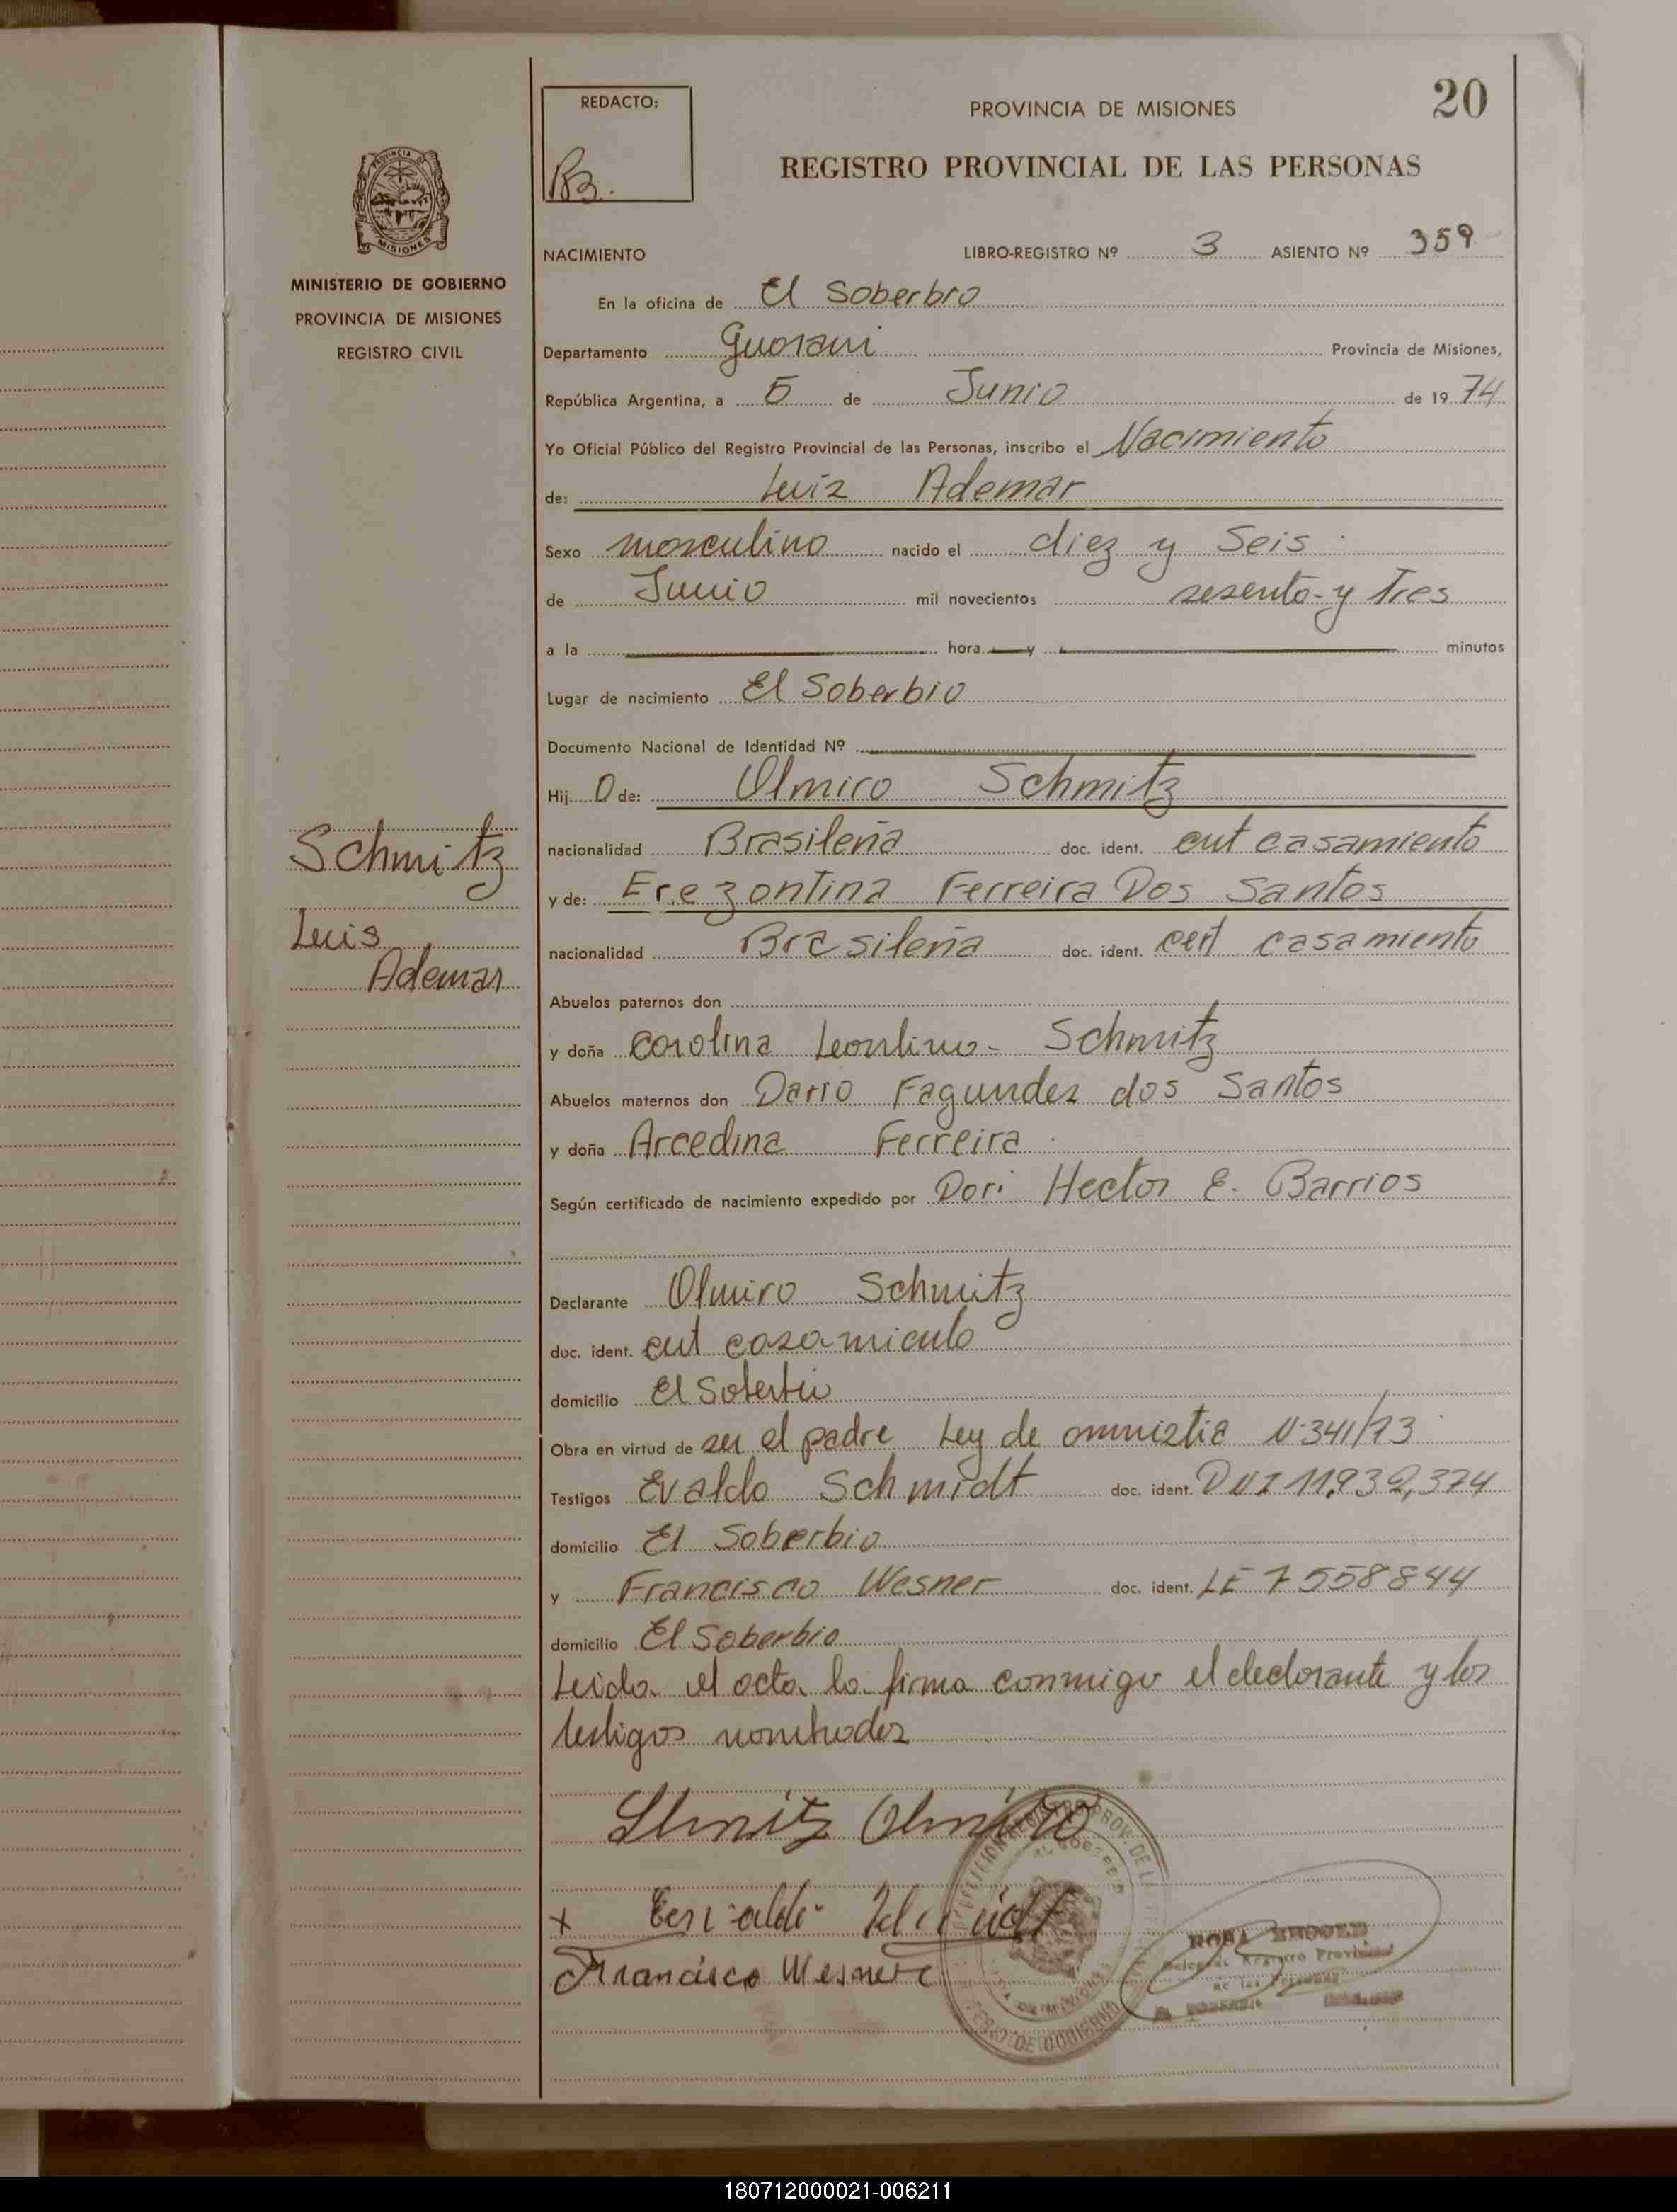 20
REDACTO:
PROVINCIA DE MISIONES
REGISTRO PROVINCIAL DE LAS PERSONAS
PROVINCIA DE
MISIONES
MINISTERIO DE GOBIERNO
PROVINCIA DE MISIONES
REGISTRO CIVIL
NACIMIENTO LIBRO-REGISTRO Nº 3 ASIENTO Nº 359
En la oficina de El Soberbio
Departamento Guarani Provincia de Misiones,
República Argentina, a 5 de Junio de 1974
Yo Oficial Público del Registro Provincial de las Personas, inscribo el Nacimiento
de: Luiz Ademar
Sexo masculino nacido el diez y Seis
de Junio mil novecientos sesenta y Tres
a la hora y minutos
Lugar de nacimiento El Soberbio
Documento Nacional de Identidad Nº
Hij O de: Olmiro Schmitz
nacionalidad Brasileña doc. ident. cert casamiento
y de: Erezontina Ferreira Dos Santos
nacionalidad Brasileña doc. ident. cert casamiento
Schmitz
Luis
Ademar
Abuelos paternos don
y doña Carolina Leontina Schmitz
Abuelos maternos don Dario Fagundes dos Santos
y doña Arcedina Ferreira
Según certificado de nacimiento expedido por Hector E. Barrios
Declarante Olmiro Schmitz
doc. ident. cert casamiento
domicilio El Soberbio
Obra en virtud de ser el padre Ley de amnistia N·341/73
Testigos Evaldo Schmidt doc. ident. DNI 11.932,374
domicilio El Soberbio
y Francisco Wesner doc. ident. LE 7558844
domicilio El Soberbio
Leida el acta la firma conmigo el declarante y los
testigos nombrados
Schmitz Olmiro
x
Francisco Wesner
ROSA
Registro Provincial
de las Personas
180712000021-006211